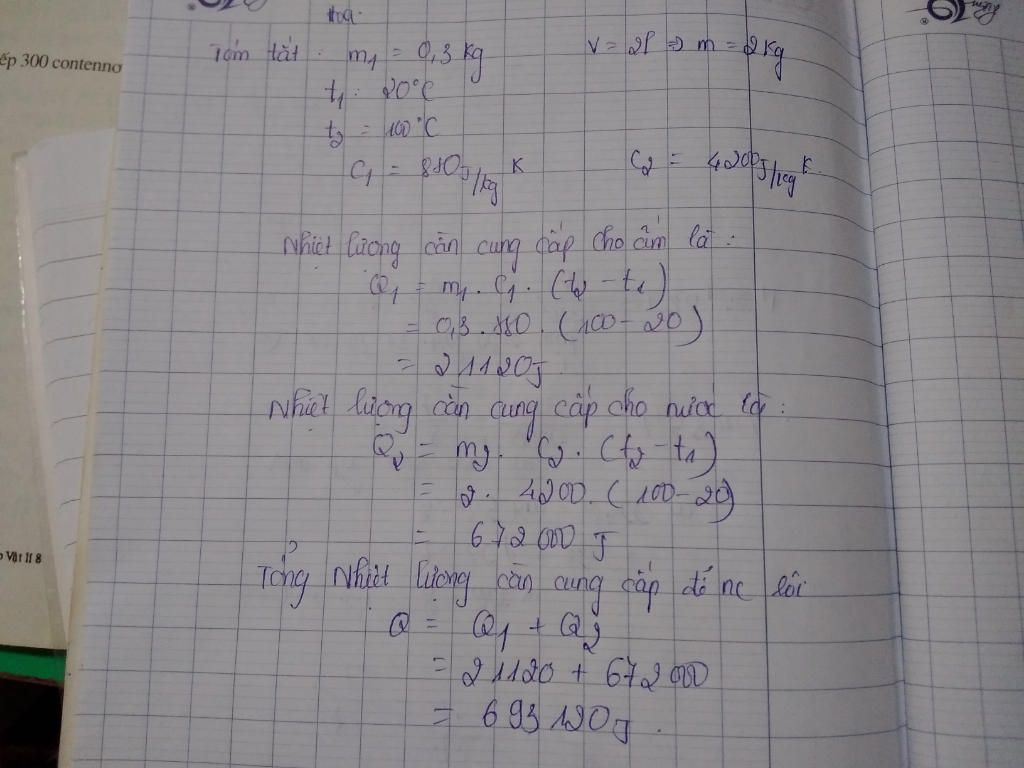 hoá.
ếp 300 contenno
Tóm tắt: m1 = 0,3 kg V = 2l => m = 2 kg
t1 : 20°C
t2 = 100°C
C1 = 880 J/kg K C2 = 4200 J/kg K.
Nhiệt lượng cần cung cấp cho ấm là :
Q1 = m1 . C1 . (t2 - t1)
= 0,3 . 880 . (100 - 20)
= 21120 J
Nhiệt lượng cần cung cấp cho nước là :
Q2 = m2 . C2 . (t2 - t1)
= 2 . 4200 . (100 - 20)
= 672 000 J
Vật lí 8
Tổng Nhiệt lượng cần cung cấp để nc sôi
Q = Q1 + Q2
= 21120 + 672 000
= 693 120 J .